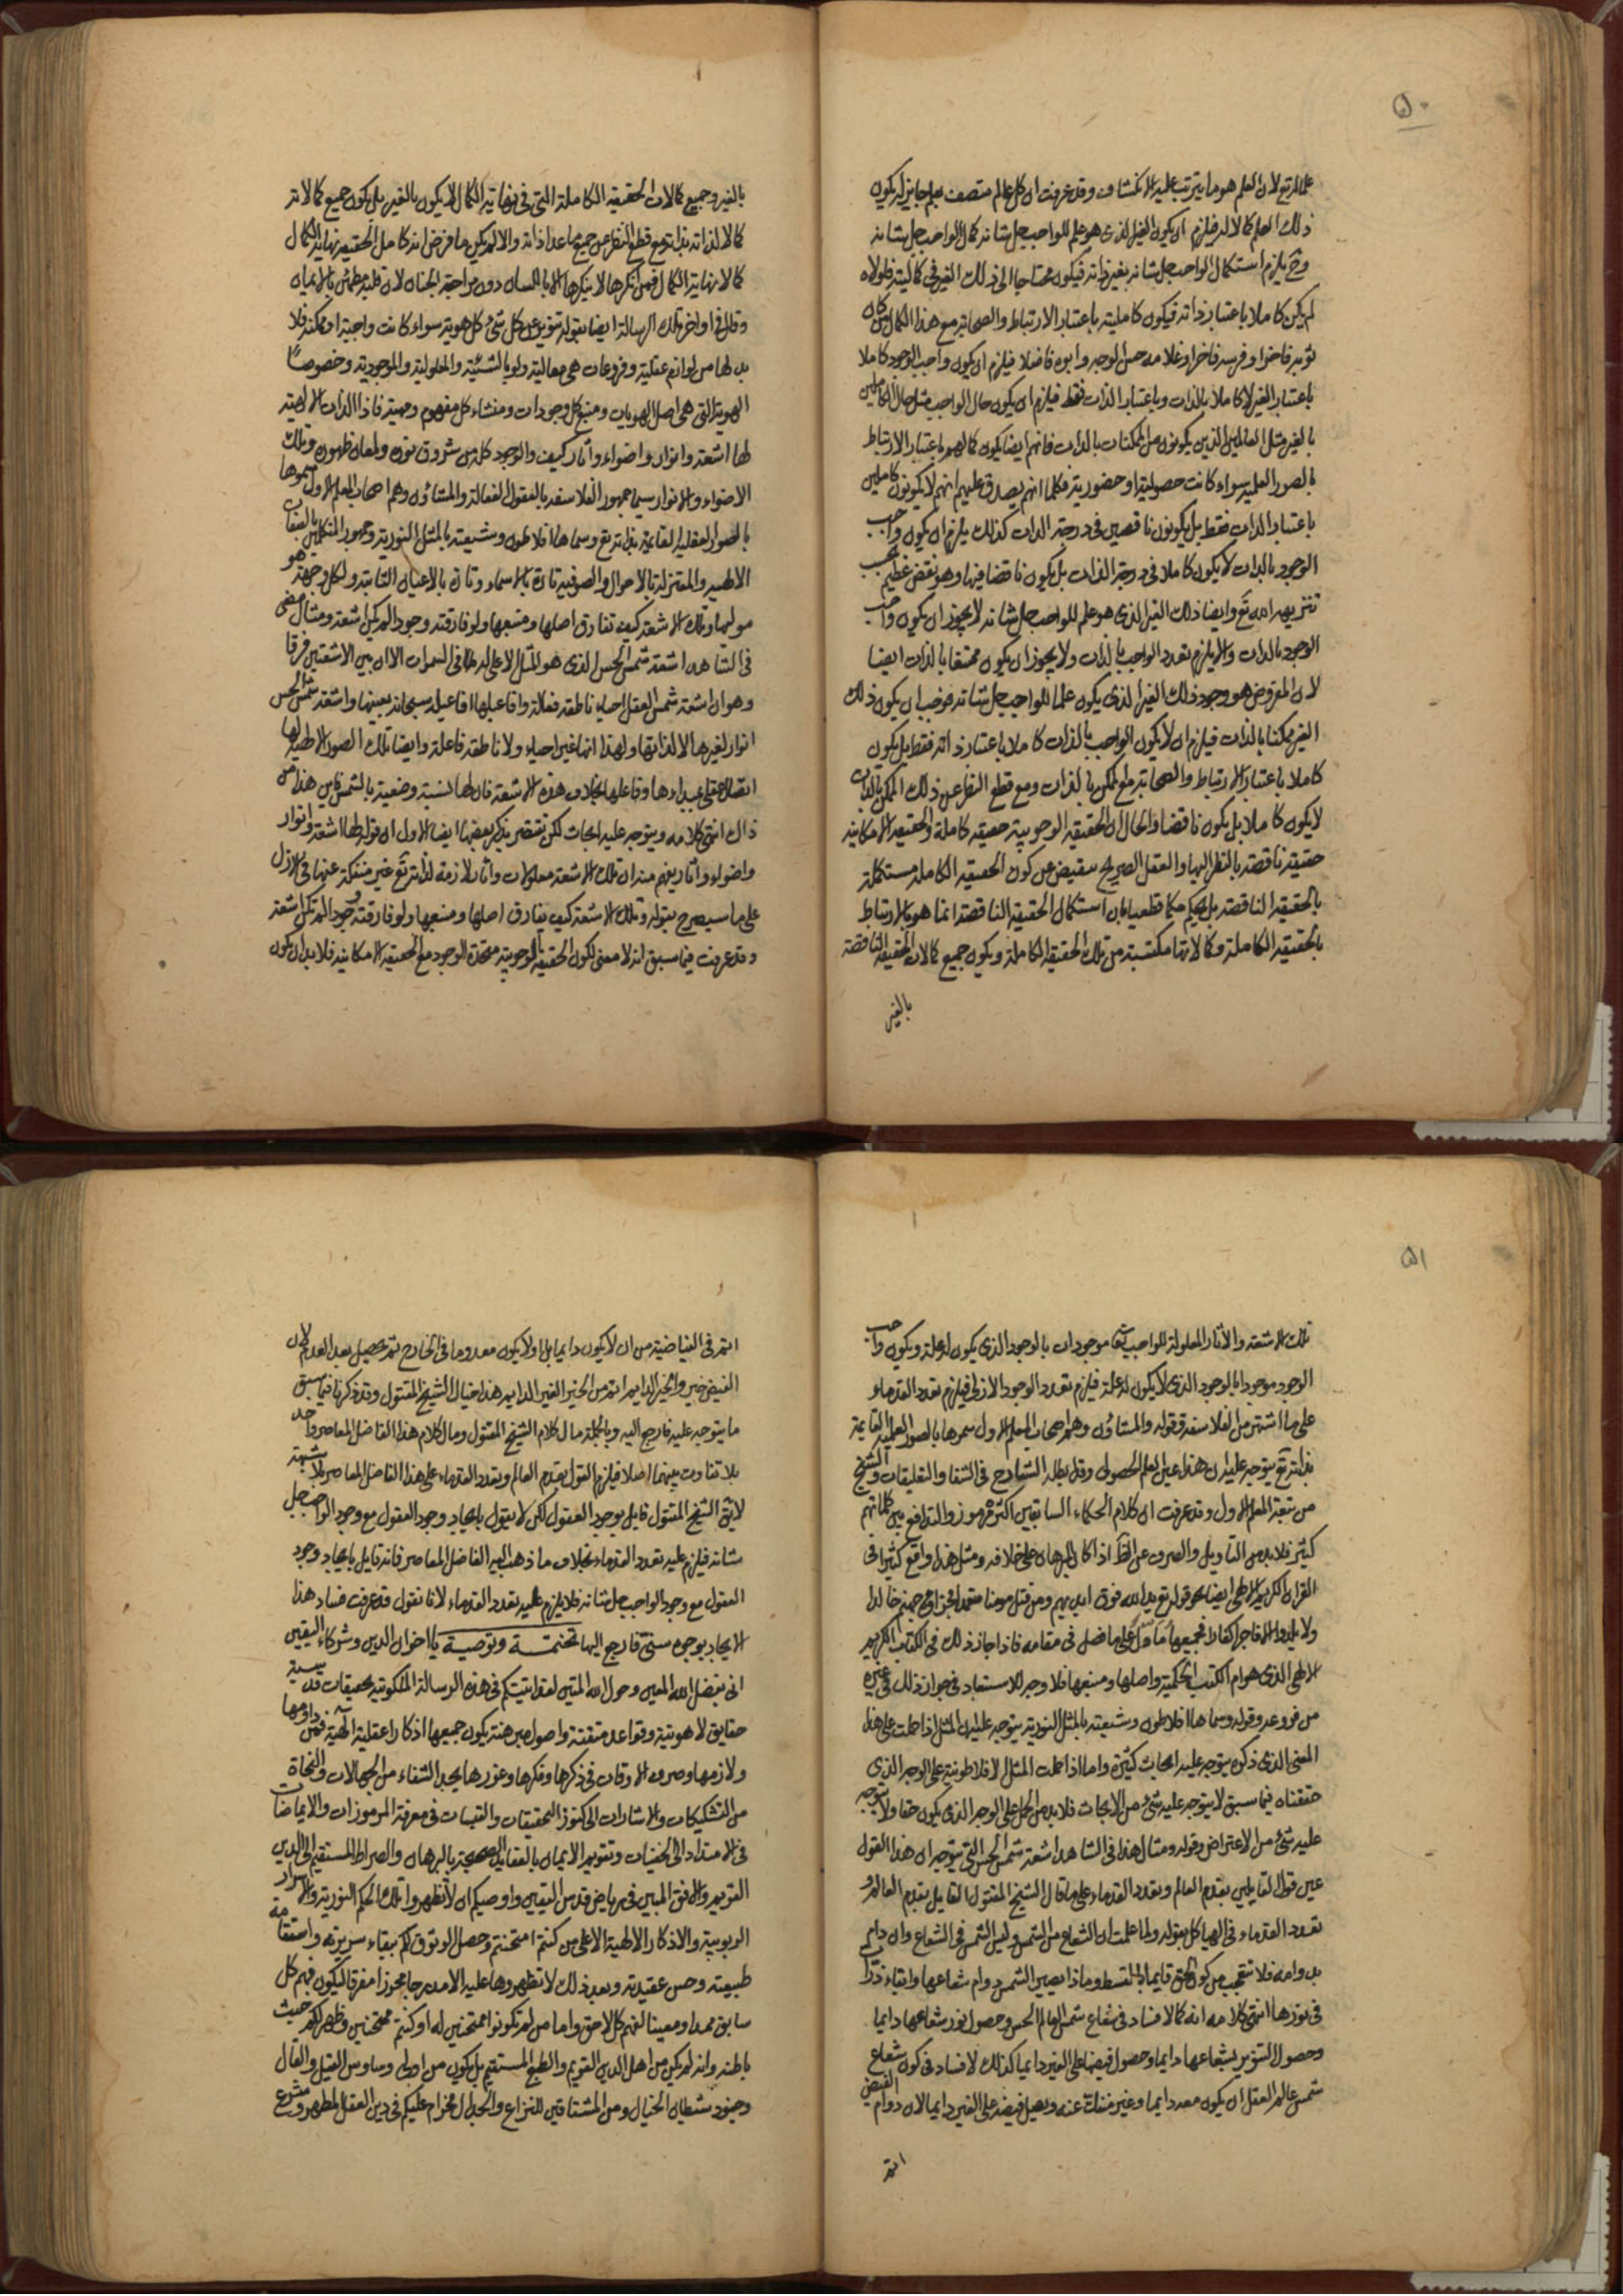 ٥٠
علما له تع لان العلم هو ما يترتب عليه الانكشاف وقد عرفت ان كل عالم متصف بعلم جاز ان يكون
ذلك العلم كمالا له فلزم ان يكون الغير الذى هو علم للواجب جل شانه كمال الواجب جل شانه
وح يلزم استكمال الواجب جل شانه بغير ذاته فيكون محتاجا الى ذلك الغير فى كماليته فلولاه
لم يكن كاملا باعتبار ذاته فيكون كامليته باعتبار الارتباط والصحابة مع هذا الكمال كان
ثوبه فاخرا وفرسه فاخرا وغلامه حسن الوجه وابوه فاضلا فيلزم ان يكون واجب الوجود كاملا
باعتبار الغير لا كاملا بالذات وباعتبار الذات فقط فيلزم ان يكون حال الواجب مثل حال الكاملين
بالغير مثل العالمين الذين يكونون من الممكنات بالذات فانهم ايضا يكون كمالهم باعتبار الارتباط
بالصور العلمية سواء كانت حصولية او حضورية فكلما انهم يصدق عليهم انهم لا يكونون كاملين
باعتبار الذات فقط بل يكونون ناقصين فى درجة الذات كذلك يلزم ان يكون واجب
الوجود بالذات لا يكون كاملا فى درجة الذات بل يكون ناقصا فيها وهو نقص عظيم يجب
تنزيهه الله تع وايضا ذلك الغير الذى هو علم للواجب جل شانه لا يجوز ان يكون واجب
الوجود بالذات والا يلزم تعدد الواجب بالذات ولا يجوز ان يكون ممتنعا بالذات ايضا
لان المفروض هو وجود ذلك الغير الذى يكون علما للواجب جل شانه فوجب ان يكون ذلك
الغير ممكنا بالذات فيلزم ان لا يكون الواجب بالذات كاملا باعتبار ذاته فقط بل يكون
كاملا باعتبار الارتباط والصحابة مع الممكن بالذات ومع قطع النظر عن ذلك الممكن بالذات
لا يكون كاملا بل يكون ناقصا والحال ان الحقيقة الوجوبية حقيقة كاملة والحقيقة الامكانية
حقيقة ناقصة بالنظر اليها والعقل الصريح عن كون الحقيقة الكاملة مستكملة
بالحقيقة الناقصة بل يحكم حكما قطعيا بان استكمال الحقيقة الناقصة انما هو بالارتباط
بالحقيقة الكاملة وكمالاتها مكتسبة من تلك الحقيقة الكاملة ويكون جميع كمالات الحقيقة الناقصة
بالغير
بالغير وجميع كمالات الحقيقة الكاملة التى فى نهاية الكمال لا يكون بالغير بل يكون جميع كمالاته
كمالا لذاته بذاته مع قطع النظر عن جميع ما عدا ذاته والا لم يكن ما فرض انه كامل الحقيقة نهاية الكمال
كمالا نهاية الكمال فمن انكرها لا ينكرها الا باللسان دون مراجعة الجنان لان قلبه مطمئن بالايمان
وقال فى اواخر تلك الرسالة ايضا بقوله تنوير عرشى كل شئ وكل هوية سواء كانت واجبة او ممكنة فلا
بد لها من لوازم عقلية وفروعات هى معاليه ولو بالشيئية والمعلولية والموجودية وخصوصا
الهوية التى هى اصل الهويات ومنبع كل وجودات ومنشاء كل مفهوم ومهية فاذا الذات الالهية
لها اشعة وانوار واضواء وآثار كيف والوجود كله من شروق نوره ولمعان ظهوره وتلك
الاضواء والانوار سيما جمهور الفلاسفة بالعقول الفعالة والمشاؤن وهم اصحاب المعلم الاول سموها
بالصور العقلية القائمة بذاته تع وسماها افلاطون وشيعته بالمثل النورية وجمهور المتكلمين بالصفات
الالهية والمعتزلة بالاحوال والصوفية تارة بالاسماء وتارة بالاعيان الثابتة ولكل وجهة هو
موليها وتلك الاشعة كيف تفارق اصلها ومنبعها ولو فارقته وجودا لم يكن اشعة ومثال
فى الشاهد اشعة شمس الحس الذى هو المثل الاعلى له تعالى فى السموات الا ان بين الاشعتين فرقا
وهو ان اشعة شمس العقل احياء ناطقة فعالة وافاعيلها افاعيله سبحانه بعينها واشعة شمس الحس
انوار لغيرها لا لذاتها ولهذا انها غير احياء ولا ناطقة فاعلة وايضا تلك الصور الالهية لها
اتصال عقلى بمبداءها وفاعلها بخلاف هذه الاشعة فان لها نسبة وضعية بالشمس فاين هذا من
ذاك انتهى كلامه ويتوجه عليه ابحاث لكن نقتصر بذكر بعضها ايضا الاول ان قوله لها اشعة وانوار
واضواء وآثار يفهم منه ان تلك الاشعة معلولات وآثار لازمة لذاته تع غير منفكة عنها فى الازل
على ما سيصرح بقوله وتلك الاشعة كيف يفارق اصلها ومنبعها ولو فارقته وجودا لم تكن اشعة
وقد عرفت فيما سبق انه لا معنى لكون الحقيقة الوجوبية متحدة الوجود مع الحقيقة الامكانية فلا بد ان يكون
٥١
تلك الاشعة والآثار المعلولة للواجب تع موجودات بالوجود الذى يكون له علة ويكون واجب
الوجود موجودا بالوجود الذى لا يكون له علة فيلزم تعدد الوجود الازلى فيلزم تعدد القدماء
على ما اشتهر من الفلاسفة وقوله والمشاؤن وهم اصحاب المعلم الاول سموها بالصور العلمية القايمة
بذاته تع يتوجه عليه ان هذا عين العلم الحصولى وقد ابطله الشارح فى الشفا والتعليقات والشيخ
من شيعة المعلم الاول وقد عرفت ان كلام الحكماء السابقين اكثره مرموز والتدافع بين كلماتهم
كثير فلا بد من التأويل والصرف عن الظ اذا كان البرهان على خلافه ومثل هذا واقع كثيرا فى
القرآن الكريم الالهى ايضا نحو قوله تع يد الله فوق ايديهم ومن قتل مؤمنا متعمدا فجزاؤه جهنم خالدا
ولا يلدوا الا فاجرا كفارا فجميعها مأول على ما فصل فى مقامه فاذا جاز ذلك فى الكتاب الكريم
الالهى الذى هو ام الكتب الحكمية واصلها ومنبعها فلا وجه للاستبعاد فى جواز ذلك فى غيره
من فروعه وقوله وسماها افلاطون وشيعته بالمثل النورية يتوجه عليه ان المثل اذا حملت على هذا
المعنى الذى ذكره يتوجه عليه ابحاث كثيرة واما اذا حملت المثل الافلاطونية على الوجه الذى
حققناه فيما سبق لا يتوجه عليه شئ من الابحاث فلا بد من الحمل على الوجه الذى يكون حقا ولا يتوجه
عليه شئ من الاعتراض وقوله ومثال هذا فى الشاهد اشعة شمس الحس التى يتوجه ان هذا القول
عين قول القايلين بقدم العالم وتعدد القدماء على ما قال الشيخ المقتول القايل بقدم العالم و
تعدد القدماء فى الهياكل بقوله ولما علمت ان الشعاع من الشمس وليس الشمس فى الشعاع وان دام
بدوامه فلا تتعجب من كون الحق قايما بالقسط وماذا يضير الشمس دوام شعاعها وابقاء ذرات
فى نورها انتهى كلامه انه كما لا فساد فى شعاع شمس العالم الحس وحصول نور شعاعها دايما
وحصول التنوير لشعاعها دايما وحصول فيضها على الغير دايما كذلك لا فساد فى كون شعاع
شمس عالم العقل ان يكون معه دايما وغير منفك عنه ويصل فيضه على الغير دايما لان دوام الفيض
اتم
اتم فى الفياضية من ان لا يكون دايما بل اولا يكون معدوما فى الخارج ثم يحصل بعد العدم لان
الفيض خير والخير الدايم اتم من الخير الغير الدايم هذا خيال الشيخ المقتول وقد ذكرنا فيما سبق
ما يتوجه عليه فارجع اليه وبالجملة مال كلام الشيخ المقتول ومال كلام هذا الفاضل المعاصر واحد
بلا تفاوت بينهما اصلا فيلزم القول بقدم العالم وتعدد القدماء على هذا الفاضل المعاصر بلا شبهة
لايق الشيخ المقتول قايل بوجود العقول لكن لا يقول باتحاد وجود العقول مع وجود الواجب جل
شانه فيلزم عليه تعدد القدماء بخلاف ما ذهب اليه الفاضل المعاصر فانه قايل باتحاد وجود
العقول مع وجود الواجب جل شانه فلا يلزم عليه تعدد القدماء لانا نقول قد عرفت فساد هذا
الاتحاد بوجوه ستى فارجع اليها تختمة وتوصية يا اخوان الدين وشركاء اليقين
انى بفضل الله المعين وحول الله المتين لقد اتيتكم فى هذه الرسالة الملكوتية بتحقيقات قدسية
حقايق لاهوتية وقواعد متقنة واصول مبرهنة يكون جميعها اذكارا عقلية آلهية فمن داومها
ولازمها وصرف الاوقات فى ذكرها وفكرها وغورها يجد الشفاء من الجهالات والنجاة
من التشكيكات والاشارات الى كنوز التحقيقات والقبسات فى معرفة المرموزات والايماضات
فى الامتداد الى الخفيات وتقويم الايمان بالعقايد الصحيحة بالبرهان والصراط المستقيم الى الدين
القويم والافق المبين فى رياض قدس اليقين واوصيكم ان لا تظهروا تلك الحكم النورية والاسرار
الربوبية والاذكار الالهية الا على من كنتم امتحنتم وحصل الوثوق لكم بنقاء سريرته واستقامة
طبيعته وحسن عقيدته وبعد ذلك لا تظهروها عليه الا مدرجا محوزا مفرقا ليكون فهم كل
سابق ممدا ومعينا لفهم كل لاحق واما من لم تكونوا ممتحنين له او كنتم ممتحنين وظهر لكم خبث
باطنه وانه لم يكن من اهل الدين القويم والطبع المستقيم بل يكون من اولى وساوس القيل والقال
وجنود شيطان الخيال ومن المشتاقين للنزاع والجدال فحرام عليكم فى دين العقل المطهر وشرع